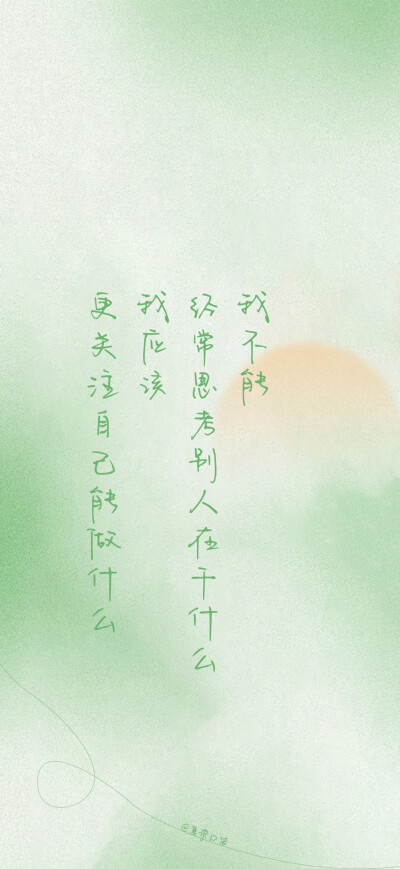 我不能
经常思考别人在干什么
我应该
更关注自己能做什么